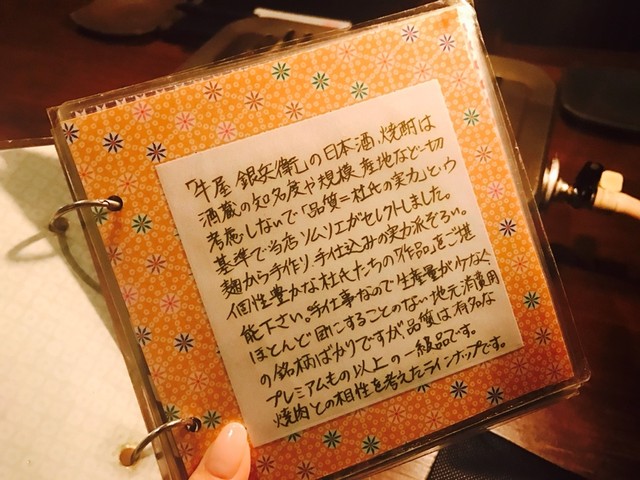 「牛屋 銀兵衛」の日本酒、焼酎は
酒蔵の知名度や規模、産地など一切
考慮しないで「品質＝杜氏の実力」という
基準で当店ソムリエがセレクトしました。
麹から手作り、手仕込みの実力派ぞろい。
個性豊かな杜氏たちの「作品」をご堪
能下さい。手仕事なので生産量が少なく
ほとんど目にすることのない地元消費用
の銘柄ばかりですが品質は有名な
プレミアムもの以上の一級品です。
焼肉との相性を考えたラインナップです。